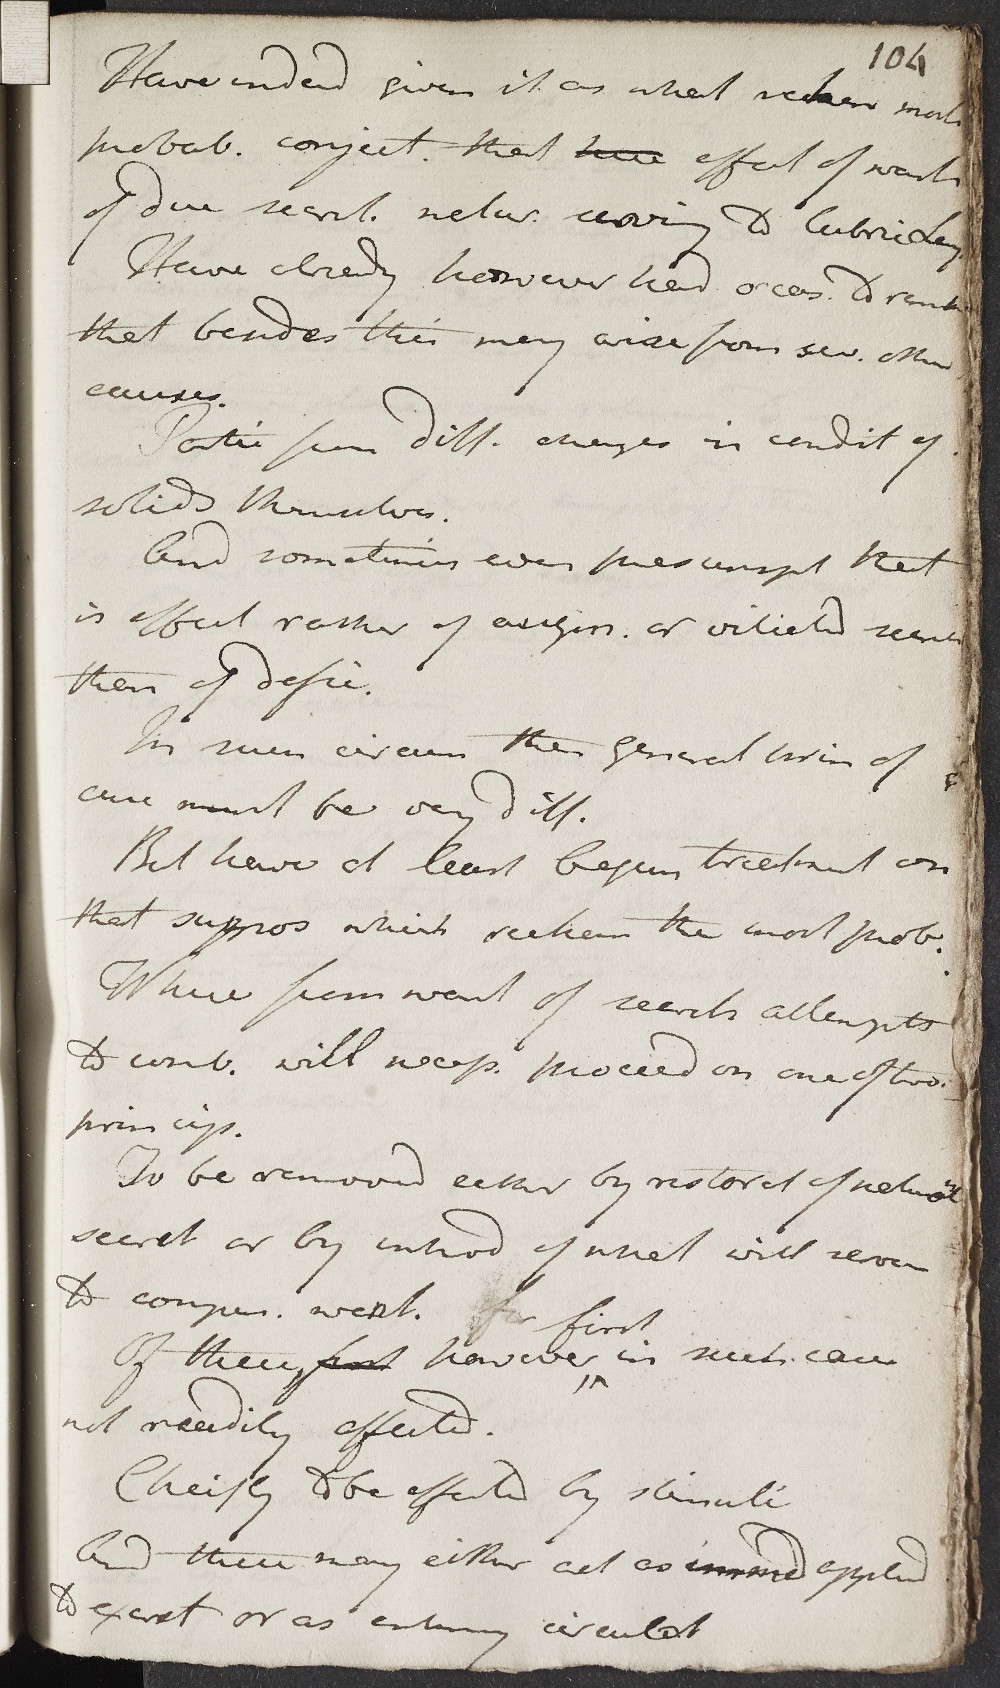 104
Have indeed given it as what reckon most
probab. conject. that here effect of want
of due secret. natur. serving to lubricary
Have already however had occas. to remk
that besides this may arise from sev. other
causes.
Partic from diff. changes in condit of
solids themselves.
And sometimes even presumpt that
is effect rather of acrim. or vitiated secret
than of defic.
In such circum then general princ of
cure must be very diff.
But have at least begun treatment on
that suppos which reckon the most prob.
Where from want of secret attempts
to comb. will necess. proceed on one of two
princip.
To be removed either by restorat of natural
secret or by introd of what will serve
to compen. want.
first
Of these first however in such case
not readily effected.
Cheifly to be effected by stimuli
And these may either act as immed applied
to excret or as entering circulat